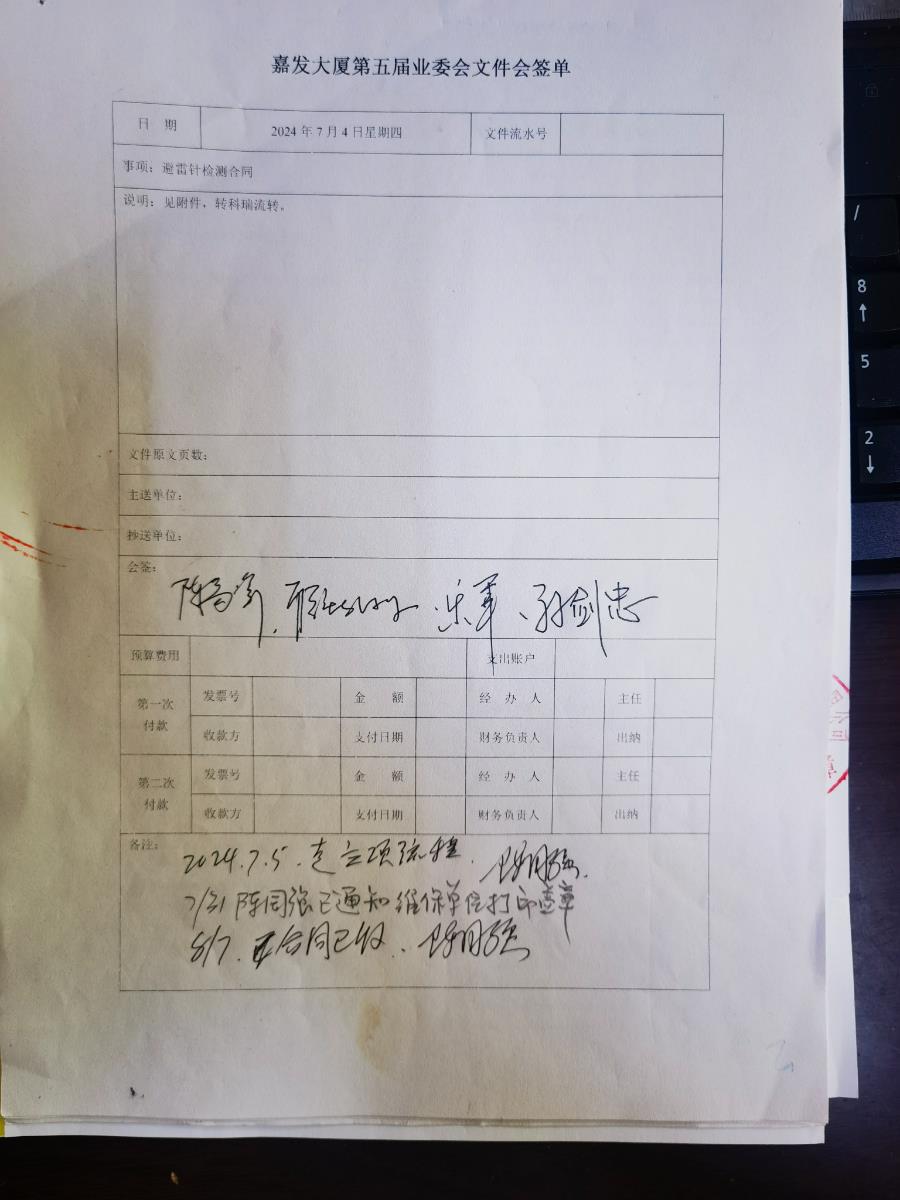 嘉发大厦第五届业委会文件会签单
日 期 2024年7月4日星期四 文件流水号
事项：避雷针检测合同
说明：见附件，转科瑞流转。
文件原文页数：
主送单位：
抄送单位：
会签：
乐军、孙剑忠
预算费用 支出账户
第一次付款 发票号 金 额 经 办 人 主任
收款方 支付日期 财务负责人 出纳
第二次付款 发票号 金 额 经 办 人 主任
收款方 支付日期 财务负责人 出纳
备注：
2024.7.5.走立项流程. 陈国强.
7/31 陈国强已通知维保单位打印盖章
8/7. 合同已收. 陈国强
/
8
↑
5
2
↓